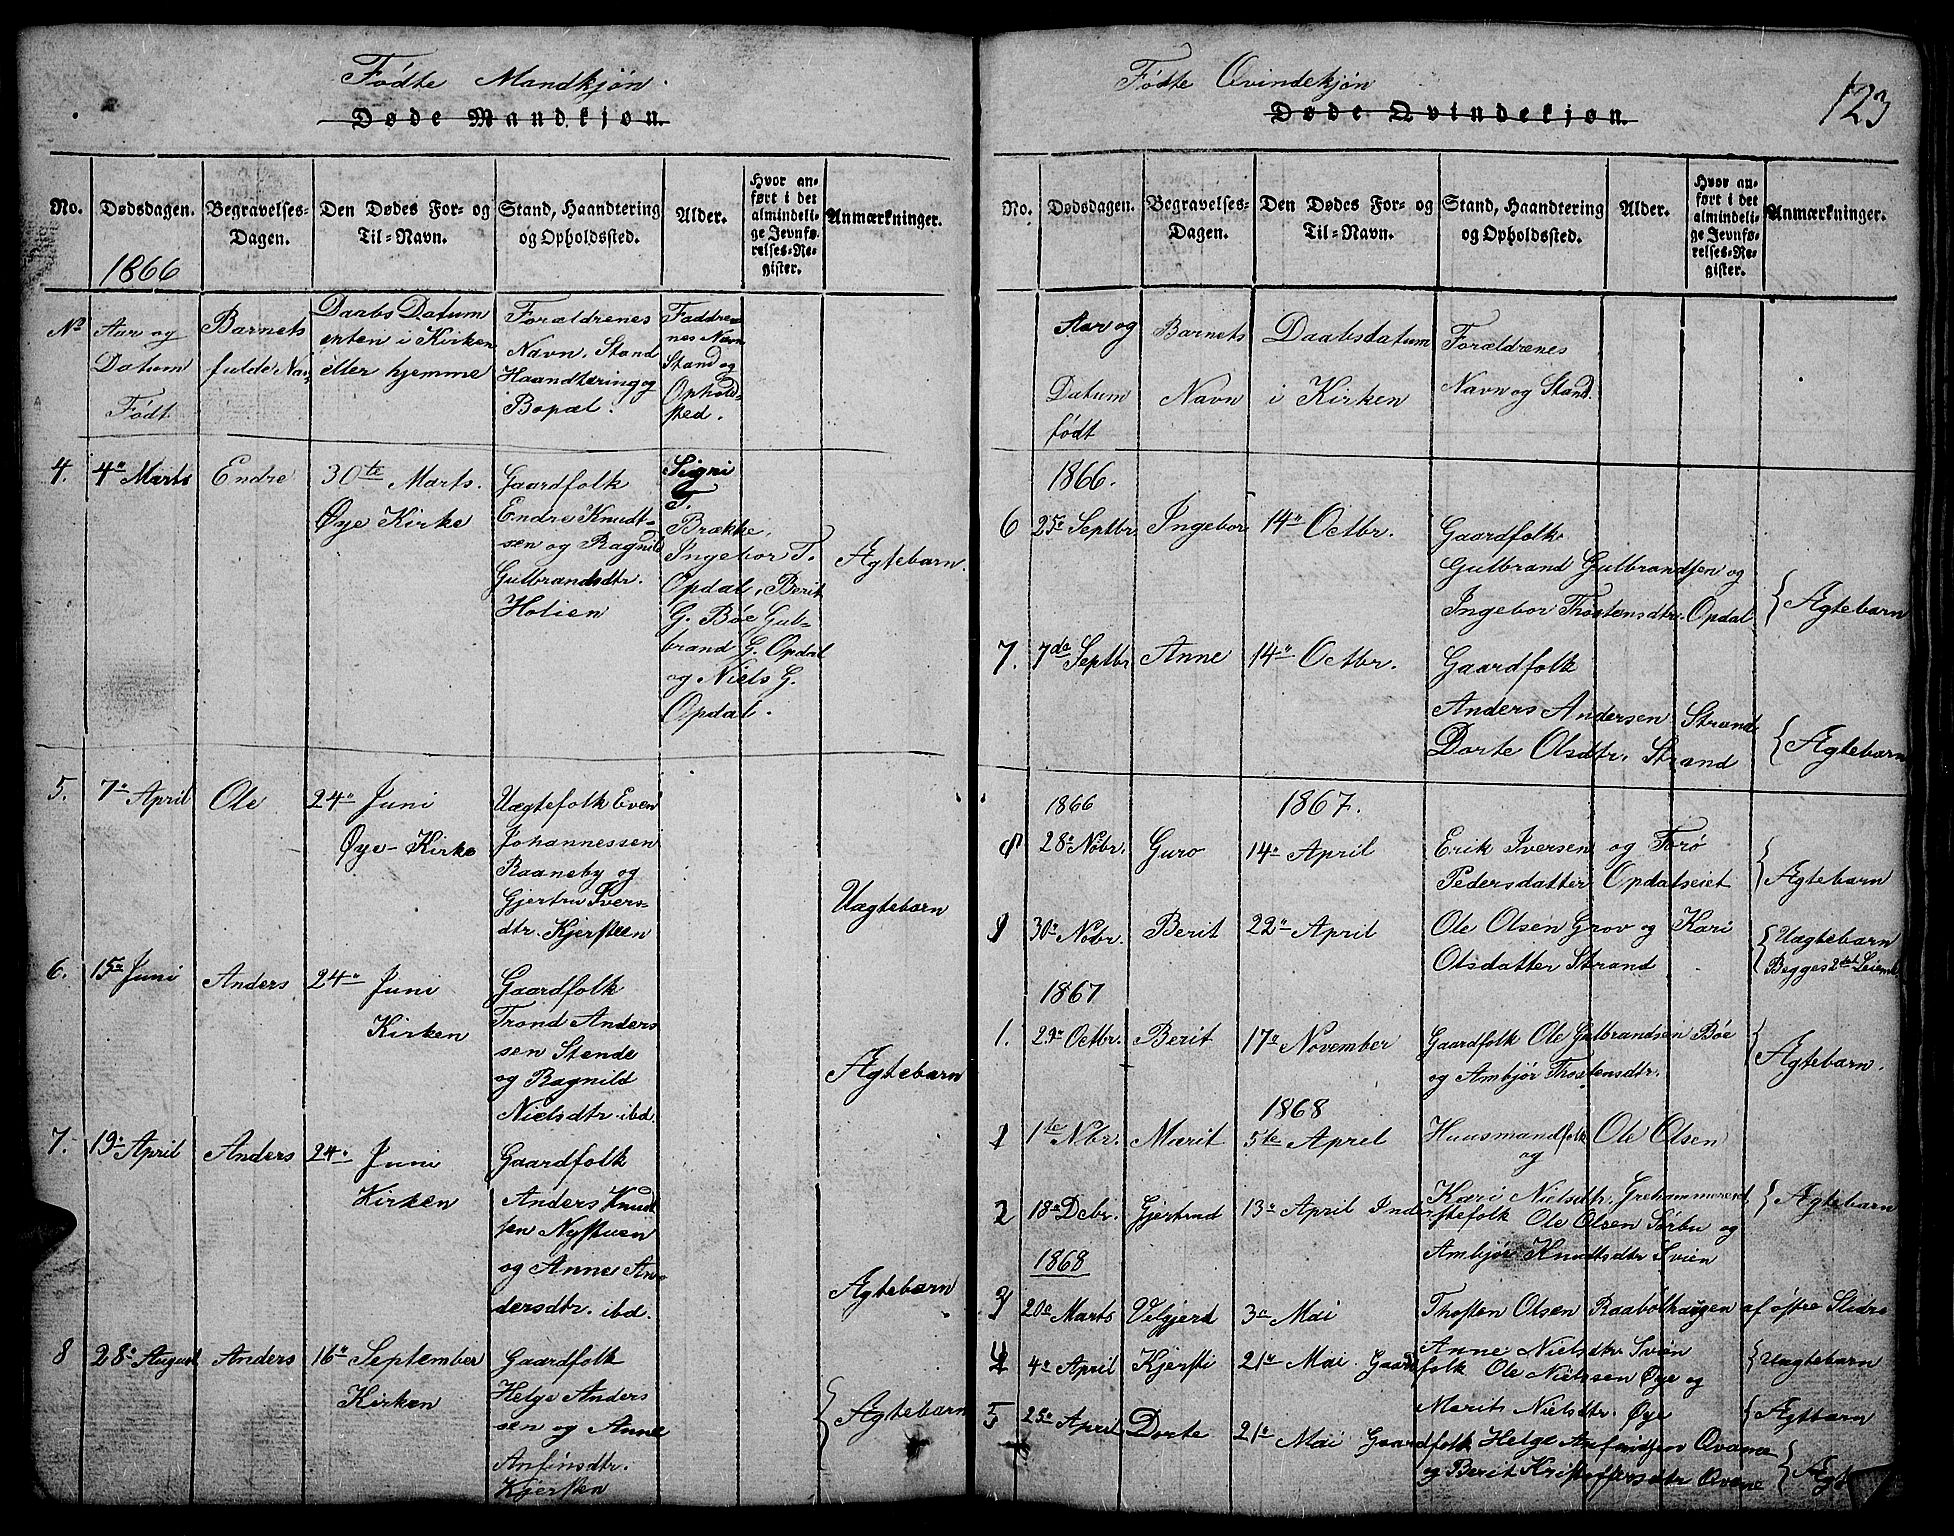 Fødte Mandkjøn.
Døde Mandkjøn.
No.
Dødsdagen.
Begravelses-
Dagen.
Den Dødes For- og
Til-Navn.
Stand, Haandtering
og Opholdssted.
Alder.
Hvor an-
ført i det
almindeli-
ge Jevnfø-
relses-Re-
gister.
Anmærkninger.
1866
No
Aar og
Datum
Født
Barnets
fulde Nav
Daabs Datum
enten i Kirken
eller hjemme
Forældrenes
Navn, Stand
Haandtering og
Bopæl.
Faddre-
nes Navn
Stand og
Ophold-
sted.
4.
4" Marts
Endre
30te Marts.
Øye Kirke
Gaardfolk
Endre Knudt-
sen og Ragnild
Gulbrandsdtr.
Holien
Signi
T.
Brække,
Ingebor T.
Opdal, Berit
G. Bøe Gul-
brand G. Opdal
og Niels G.
Opdal.
Ægtebarn.
5.
7de April
Ole
24" Juni
Øye-Kirke
Uægtefolk Even
Johannessen
Raaneby og
Gjertru Ivers-
dtr. Kjersteen
Uægtebarn
6.
15de Juni
Anders
24" Juni
Kirken
Gaardfolk
Trond Anders
sen Stende
og Ragnild
Nielsdtr. ibd.
Ægtebarn
7.
19de April
Anders
24" Juni
Kirken
Gaardfolk
Anders Knud
sen Nystuen
og Anne An-
dersdtr. ibd.
Ægtebarn
8
28de August
Anders
16" September
Kirken
Gaardfolk
Helge Anders
sen og Anne
Anfinsdtr.
Kjersten
Ægtebarn
Fødte Qvindekjøn
Døde Qvindekjøn.
123
No.
Dødsdagen.
Begravelses-
Dagen.
Den Dødes For- og
Til-Navn.
Stand, Haandtering
og Opholdssted.
Alder.
Hvor an-
ført i det
almindeli-
ge Jevnfø-
relses-Re-
gister.
Anmærkninger.
Aar og
Datum
født
Barnets
Navn
Daabsdatum
i Kirken
Forældrenes
Navn og Stand.
1866.
6
25de Septbr.
Ingebor
14" Octbr.
Gaardfolk
Gulbrand Gulbrandsen og
Ingebor Thostensdtr. Opdal
Ægtebarn
7.
7de Septbr
Anne
14" Octbr.
Gaardfolk
Anders Andersen Strand
Dorte Olsdtr. Strand
Ægtebarn
1866
1867.
8
28de Nobr.
Guro
14" April
Erik Iversen og Torø
Pedersdatter Opdalseiet
Ægtebarn
9
30te Nobr.
Berit
22" April
Ole Olsen Grov og Kari
Olsdatter Strand
Uægtebarn
Begges 2det
1867
1.
29de Octbr.
Berit
17de November
Gaardfolk Ole Gulbrandsen Bøe
og Ambjør Thostensdtr.
Ægtebarn.
1868
1
1te Nbr.
Marit
5te April
Huusmandfolk Ole Olsen
og
Kari Nielsdtr.
Ægtebarn
2
18de Debr.
Gjertrud
13de April
Inderstefolk Ole Olsen Sørbu og
Ambjør Knudtsdtr Svien
1868
3
20de Marts
Velgjerd
3de Mai
Thosten Olsen Raabolhaugen af østre Slidre
Anne Nielsdtr. Svøn
Uægtebarn
4
4de April
Kjersti
21de Mai.
Gaardfolk Ole Nielssen Øye og
Marit Nielsdtr. Øye
Ægtbarn
5
25de April
Dorte
21de Mai
Gaardfolk Helge Anfindsen Qvame
og Berit Kristoffersdtr Qvame
Ægt